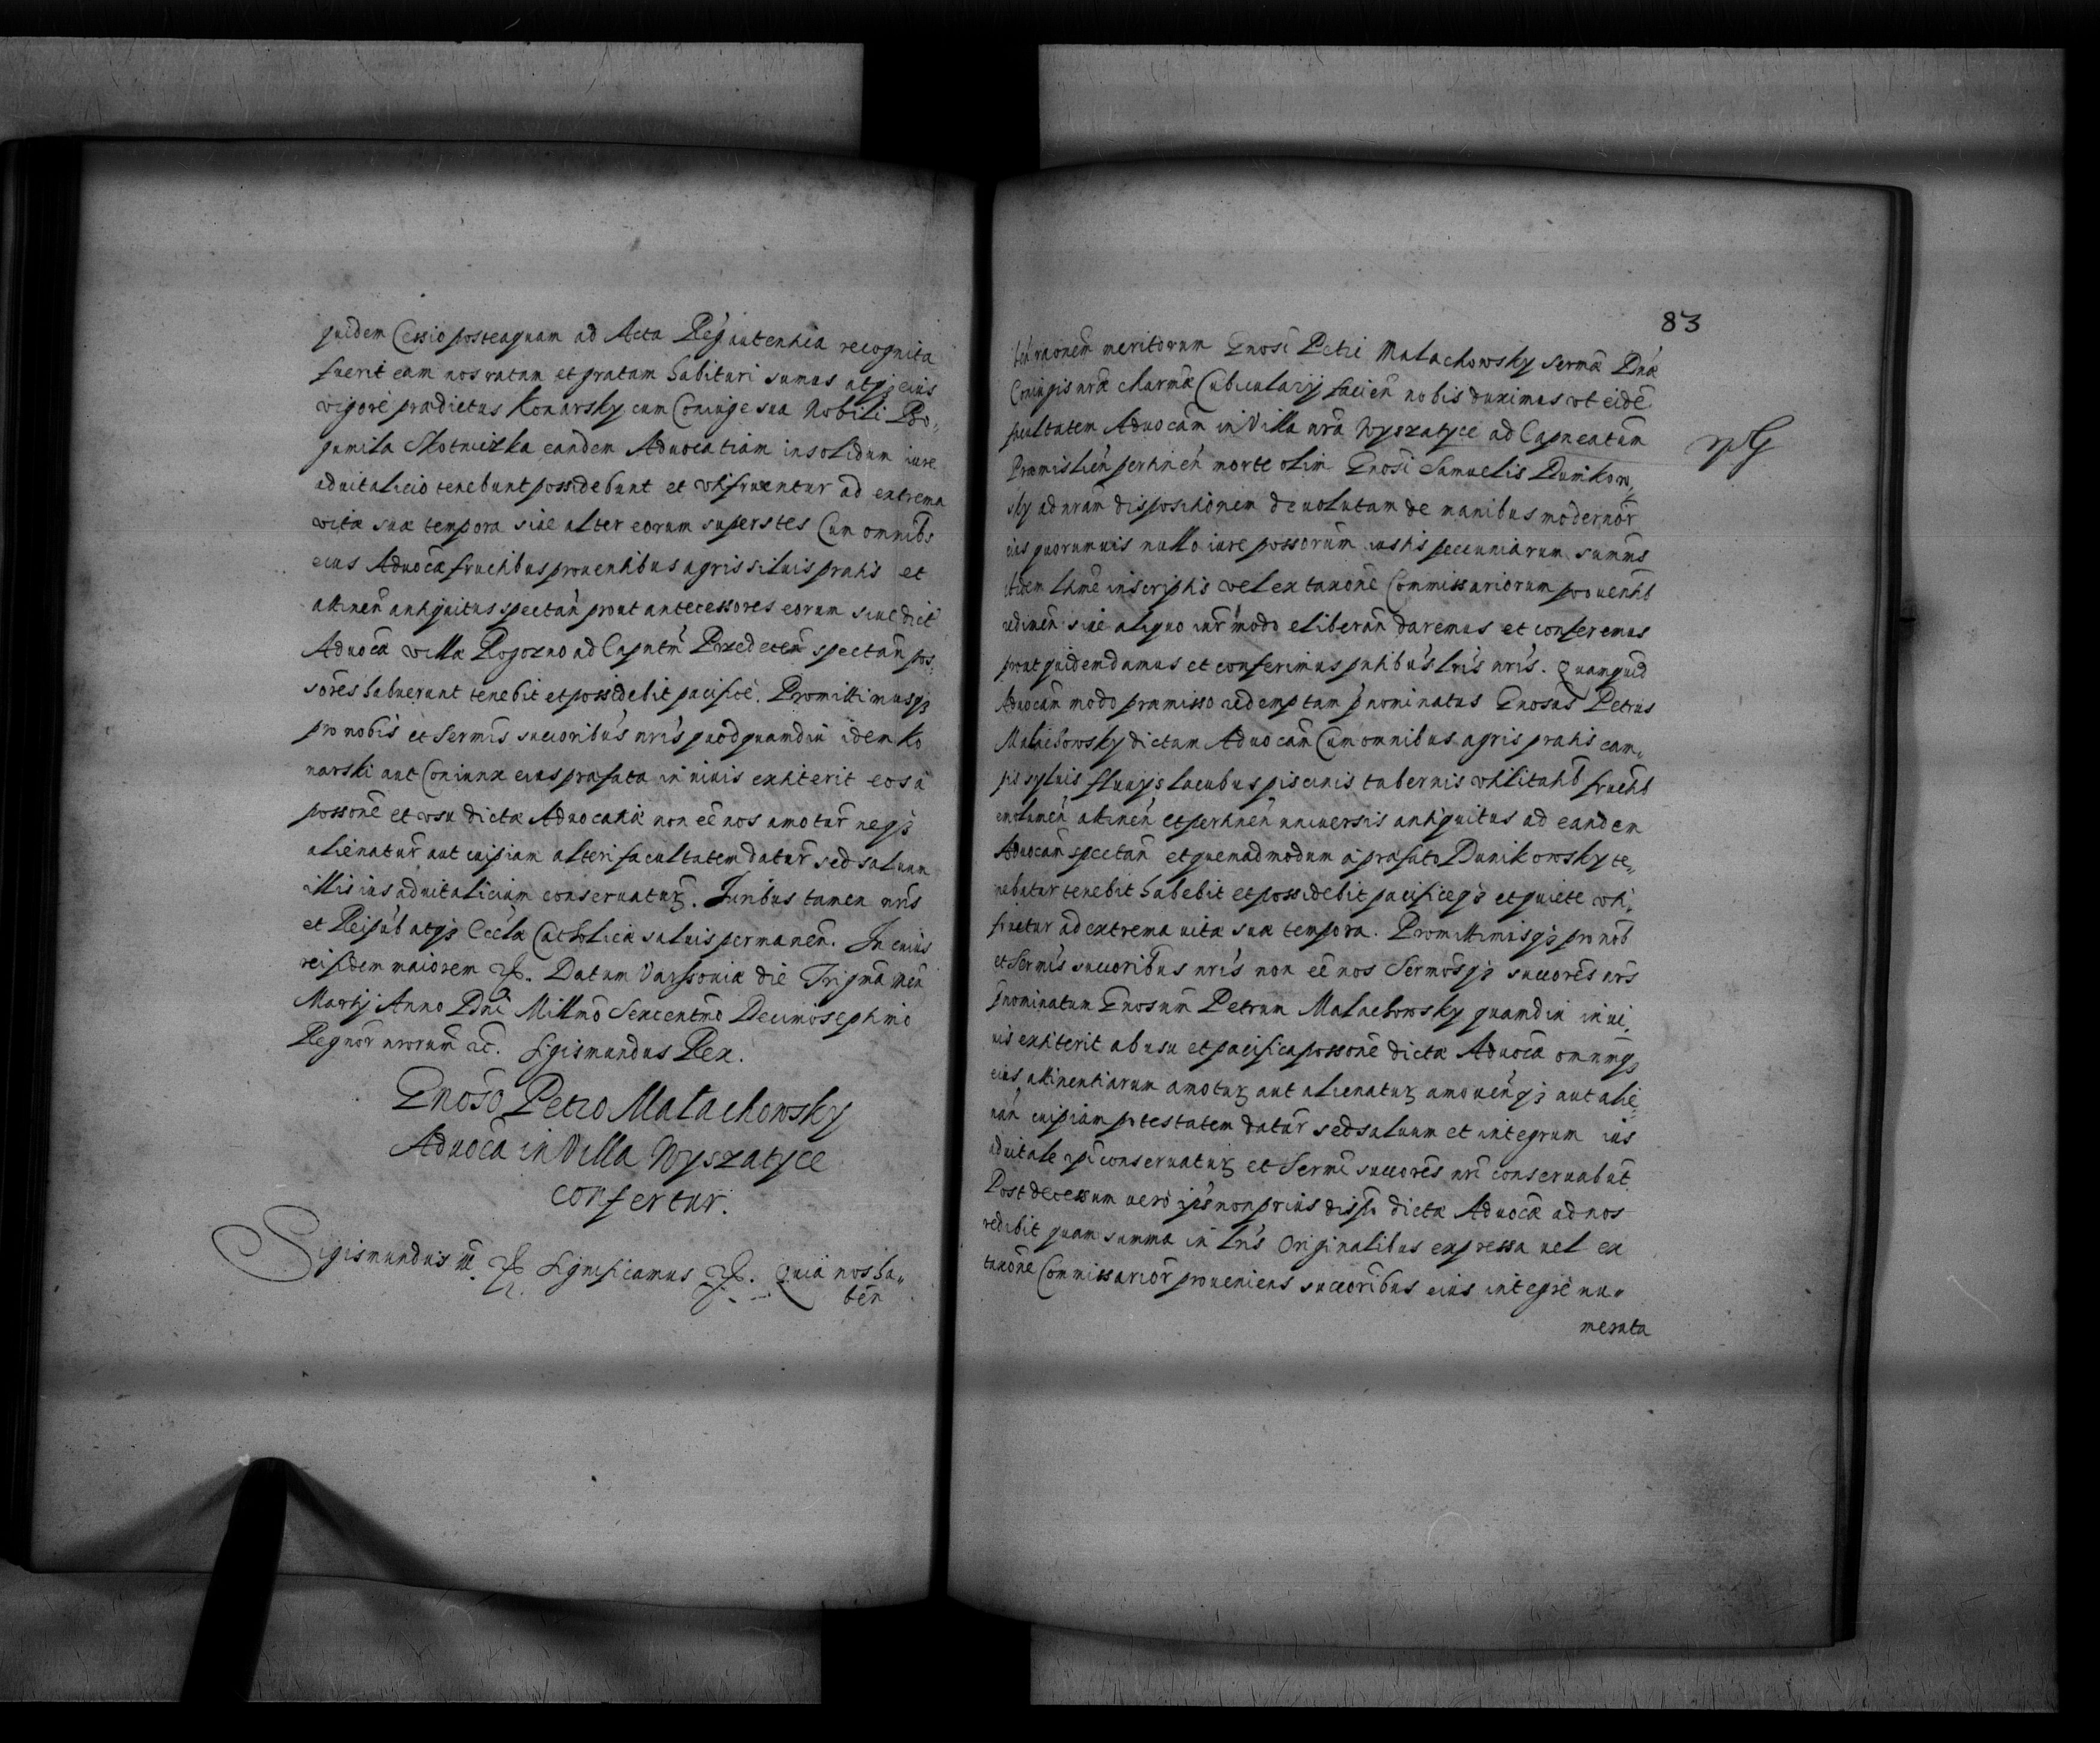 quidem Cessio posteaquam ad Acta Regia autentica recognita
fuerit eam nos ratam et gratam habituri sumus atqȝ eius
vigore prædictus Konarsky cum Coniuge sua Nobili Bo„
gumila Skotniczka eandem Aduocatiam in solidum iure
aduitalicio tenebunt possidebunt et vtifruentur ad extrema
vitæ suæ tempora siue alter eorum superstes Cum omnibs
eius Aduocæ fructibus prouentibus agris siluis pratis et
attinen̄ antiquitus spectan̄ prout antecessores eorum siue dict
Aduocæ villæ Rogozno ad Capnt̄m Przedecen̄ spectan̄ pos„
sores habuerunt tenebit et possidebit pacificè. Promittimusqȝ
pro nobis et Sermis succoribus nris quod quamdiu idem Ko
narski aut Coniunx eius præfata in viuis extiterit eos à
possone et vsu dictæ Aduocatiæ non eē nos amotur̄ neqȝ
alienatur̄ aut cuipiam alteri facultatem datur̄ sed saluum
illis ius aduitalicium conseruatur̄. Iuribus tamen nris
et Reipub atqȝ Eccl̄æ Catholicæ saluis permanen̄. In cuius
rei fidem maiorem &. Datum Varssouiæ die Trigma Men
Martij Anno Dni Millmo Sexcentmo Decimoseptimo
Regnor nrorum &c. Sigismundus Rex.
Gnoso Petro Malachowsky
Aduocā in Villa Wyszatyce
confertur.
Sigismundus III & Significamus &. Quia nos ha„
ben
83
rationem meritorum Gnosi Petri Malachowsky Sermæ Dnæ
Coniugis nræ charmæ Cubicularij facien̄ nobis duximus vt eidē
facultatem Aduocām in Villa nrā Wyszatyce ad Capneatum
Præmislien̄ pertinen̄ morte olim Gnosi Samuelis Dunikow„
sky ad nram dispositionem deuolutam de manibus modernor
eius quorumuis nullo iure possorum iustis pecuniarum summs
itidem ltime inscriptis vel ex taxone Commissariorum prouentib
redimen̄ siue aliquo iur modo eliberan̄ daremus et conferemus
prout quidem damus et conferimus pntibus lris nris. Quamquid
Aduocam modo præmisso redemptam p̄nominatus Gnosus Petrus
Malachowsky dictam Aduocam Cum omnibus agris pratis cam„
pis syluis fluuijs lacubus piscinis tabernis vtilitatib fructib
emolumen̄ attinen̄ et pertinen̄ vniuersis antiquitus ad eandem
Aduocam spectan̄ et quemadmodum à præfato Dunikowsky te„
nebatur tenebit habebit et possidebit pacificeqȝ et quiete vti„
fruetur ad extrema vitæ suæ tempora. Promittimusqȝ pro nob
et Sermis succoribus nris non eē nos Sermosqȝ succores nrs
p̄nominatum Gnosum Petrum Malachowsky quamdiu in vi„
uis extiterit ab usu et pacifica possone dictæ Aduocæ omnmqȝ
eius attinentiarum amotur̄ aut alienatur̄ amouen̄qȝ aut alie„
nan̄ cuipiam potestatem datur̄ sed saluum et integrum ius
aduitale ipi conseruatur̄ et Sermi succores nri conseruabut
Post decessum vero ips non prius dispo dictæ Aduocæ ad nos
redibit quam summa in lris Originalibus expressa vel ex
taxone Commissarior proueniens succoribus eius integrè nu„
merata